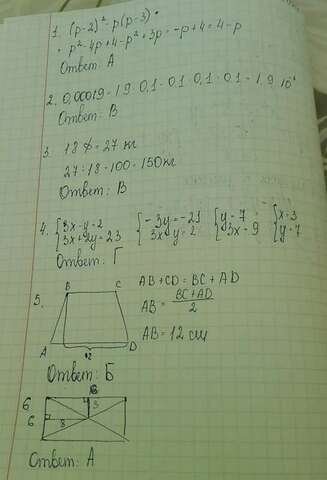 1. (p-2)² - p(p-3) =
= p² - 4p + 4 - p² + 3p = -p + 4 = 4 - p
Ответ: А
2. 0,00019 = 19 · 0,1 · 0,1 · 0,1 · 0,1 = 1,9 · 10
Ответ: В
3. 18 % = 27 кг
27 : 18 · 100 = 150 кг
Ответ: В
4. { 3x - y = 2 { -3y = -21 { y = 7 { x = 3
{ 3x + 2y = 23 { 3x - y = 2 { 3x = 9 { y = 7
Ответ: Г
5. B C AB + CD = BC + AD
AB = BC + AD / 2
A D AB = 12 см
12
Ответ: Б
6.
6 8
Ответ: А